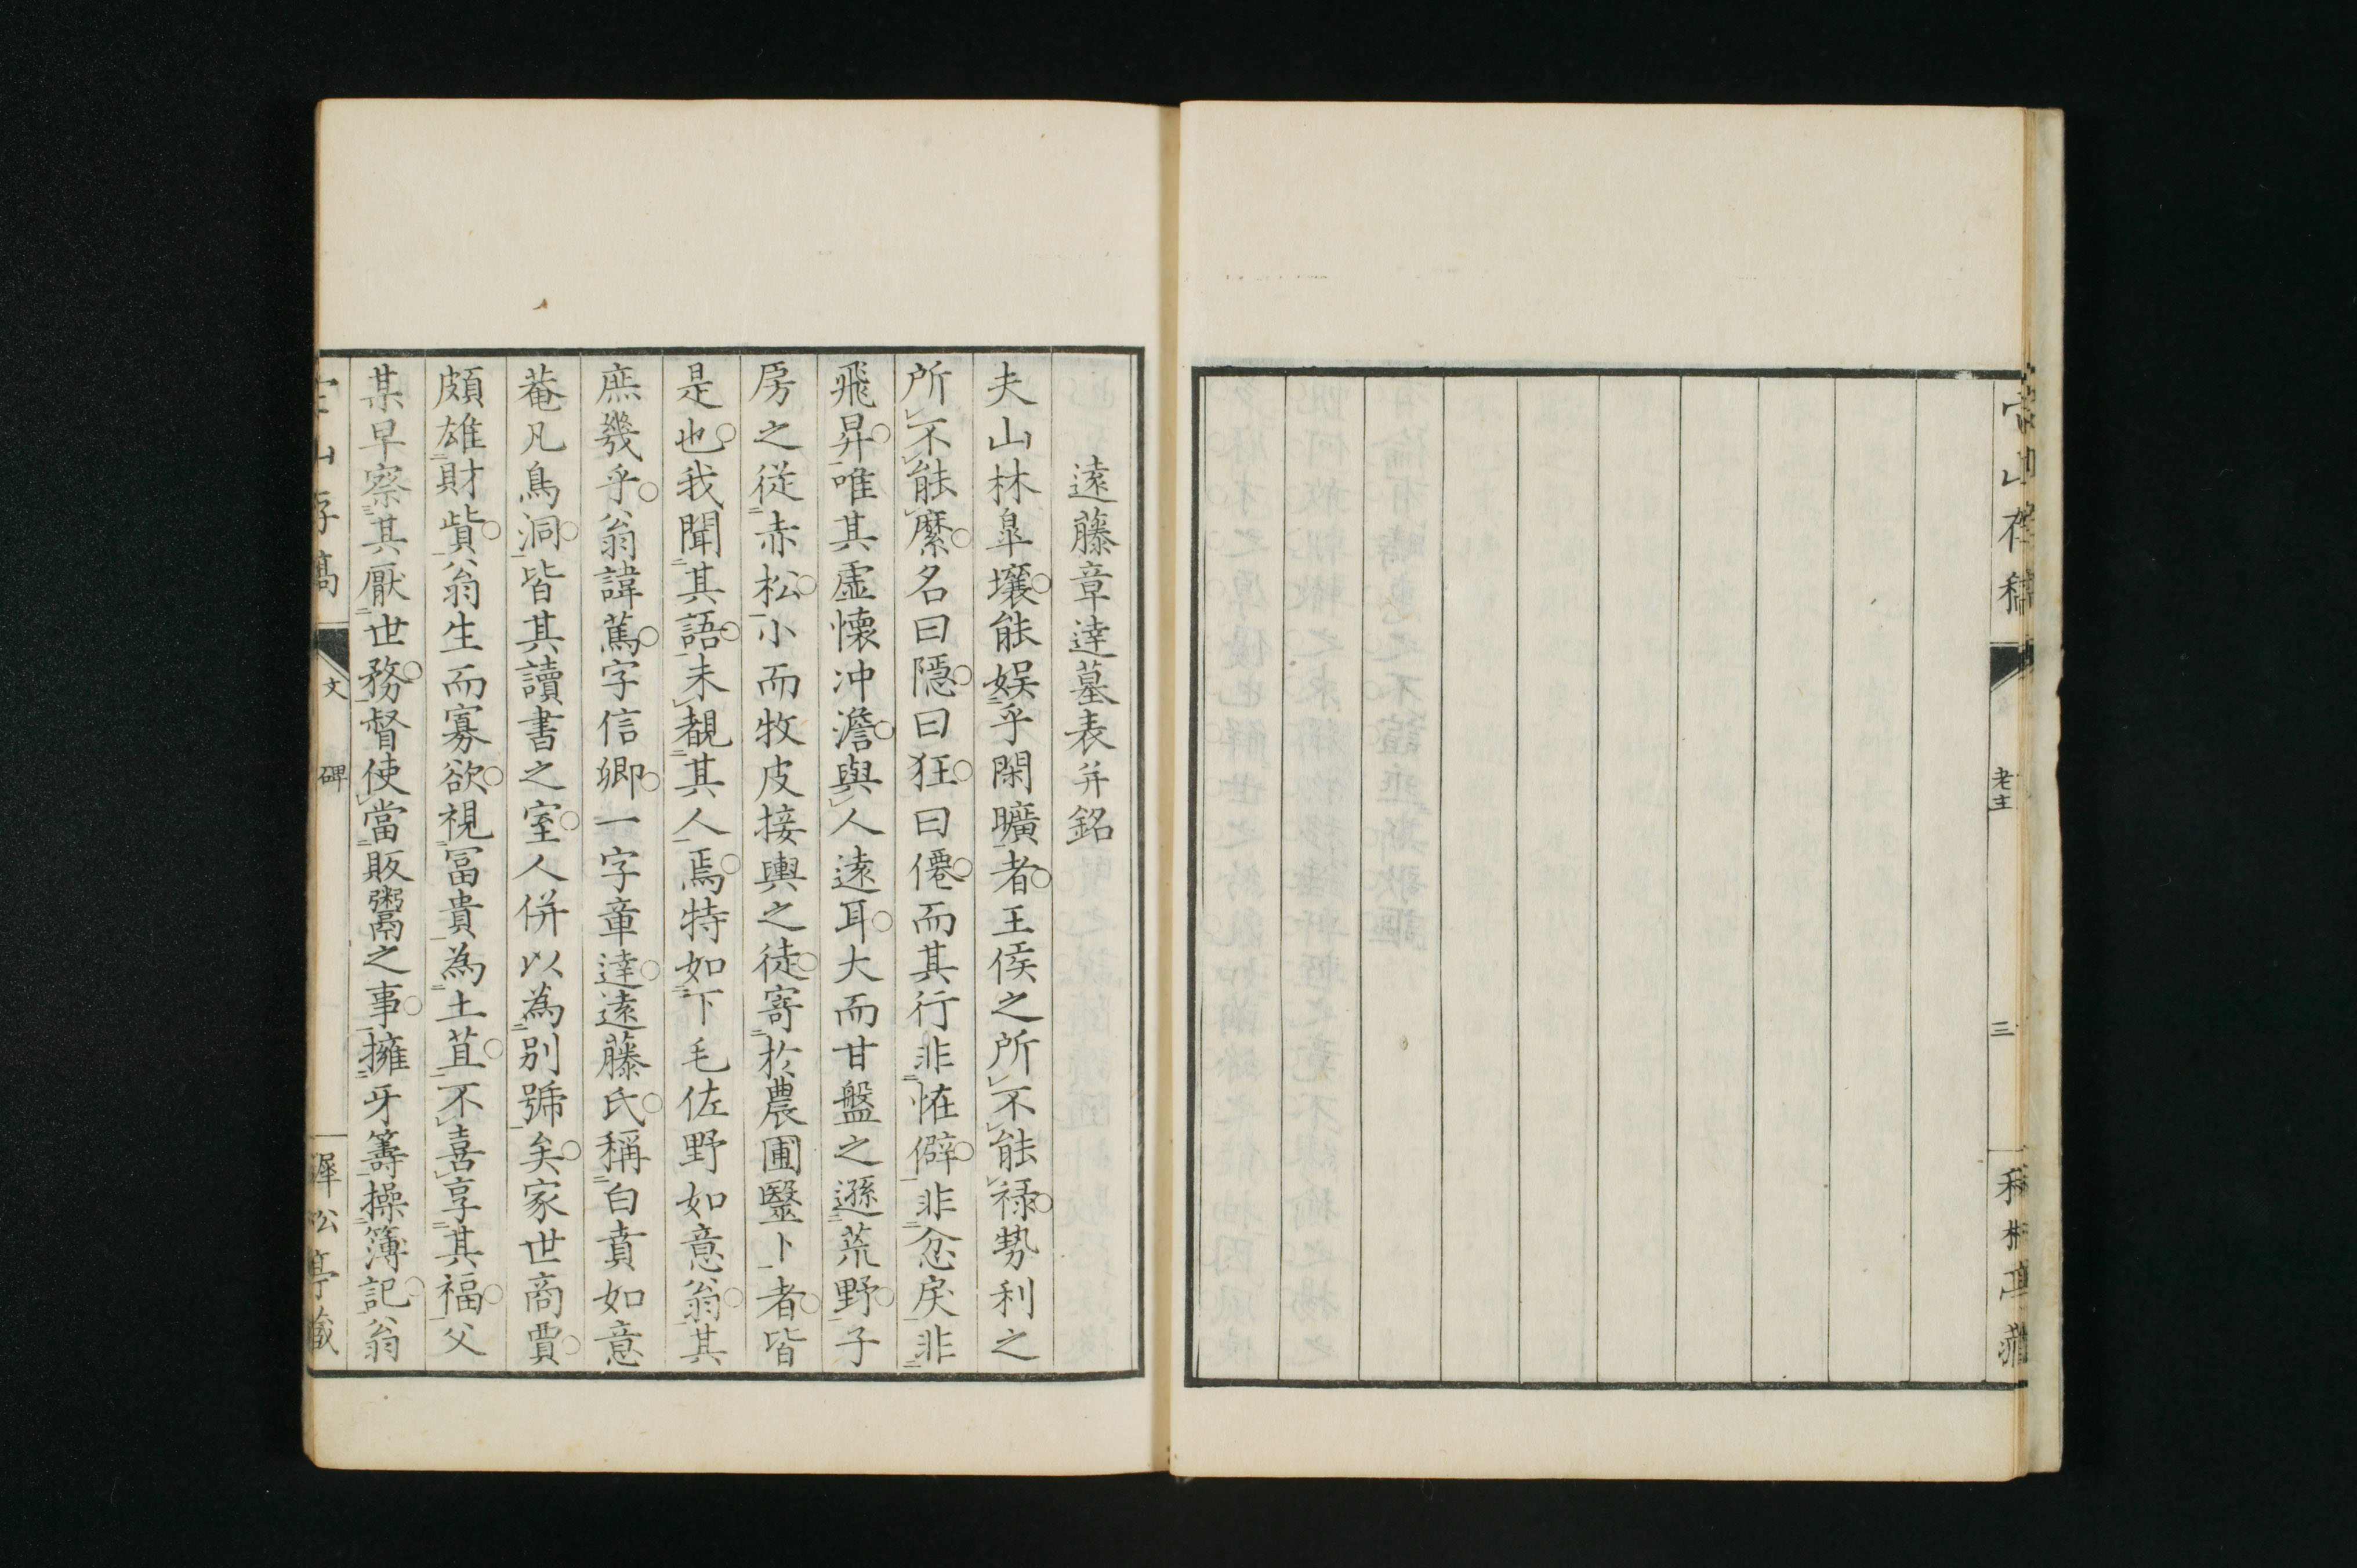 遠藤章達墓表并銘
夫山林皐壤能娯乎閑曠者王侯之所不能祿勢利之
所不能縻名曰隱曰狂曰僊而其行非恠僻非忿戾非
飛昇唯其虛懷冲澹與人遠耳大而甘盤之遜荒野子
房之從赤松小而牧皮接輿之徒寄於農圃醫卜者皆
是也我聞其語未覩其人焉特如下毛佐野如意翁其
庶幾乎翁諱蔿字信卿一字章達遠藤氏稱白賁如意
菴凡鳥洞皆其讀書之室人併以為別號矣家世商賈
頗雄財貲翁生而寡欲視冨貴為土苴不喜享其福父
某早察其厭世務督使當販鬻之事擁牙籌操簿記翁
文
碑
三